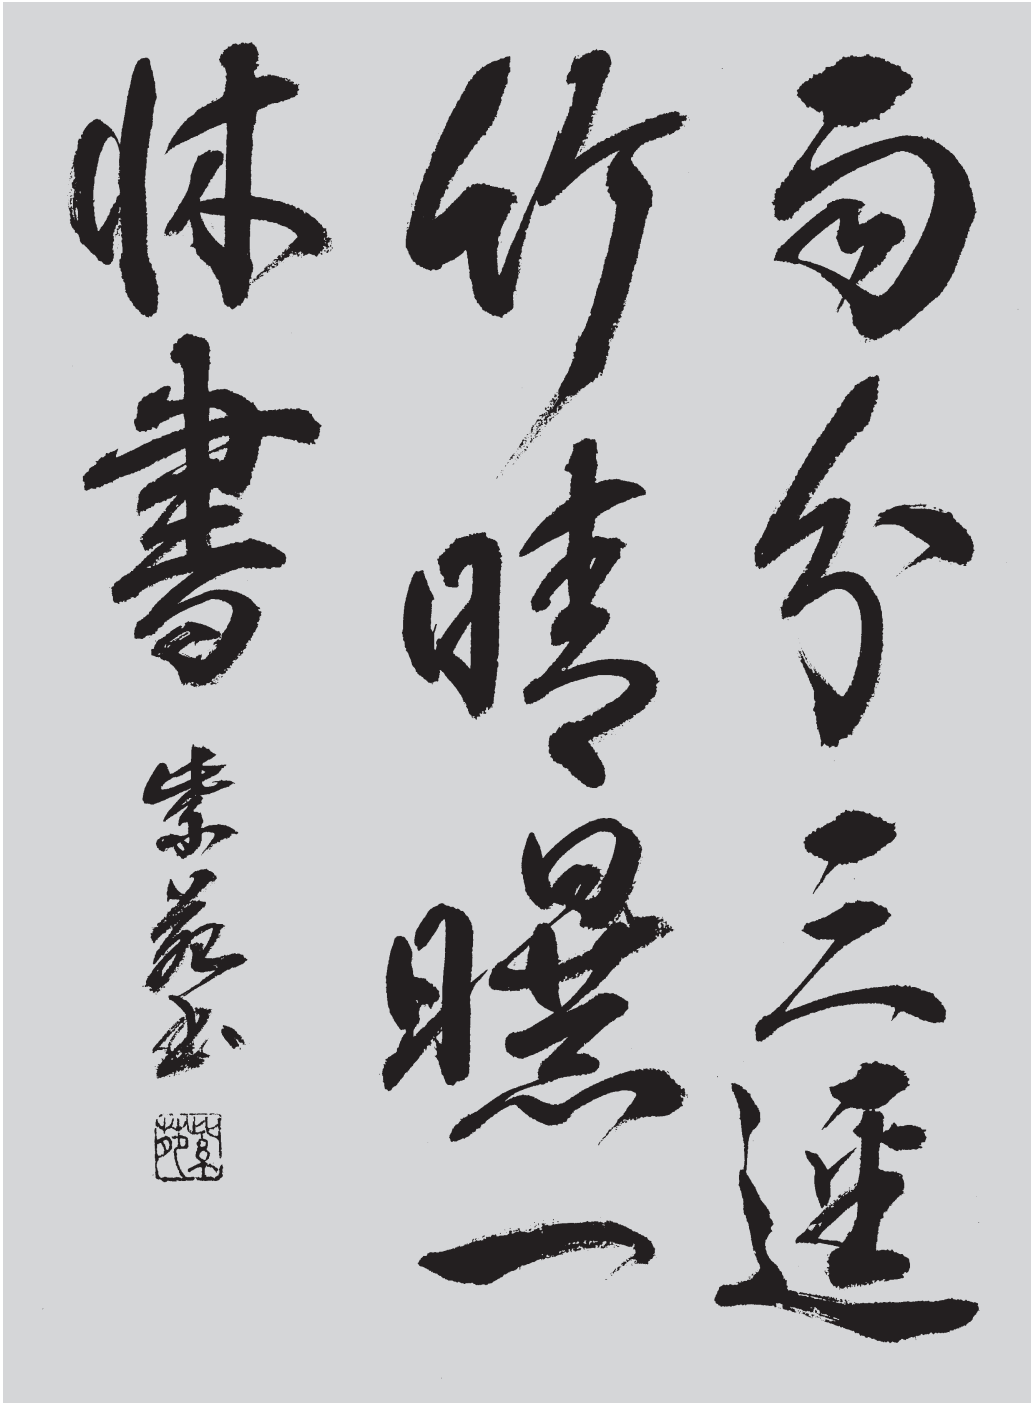 雨分三逕
竹晴曝一
牀書 紫苑書
紫苑